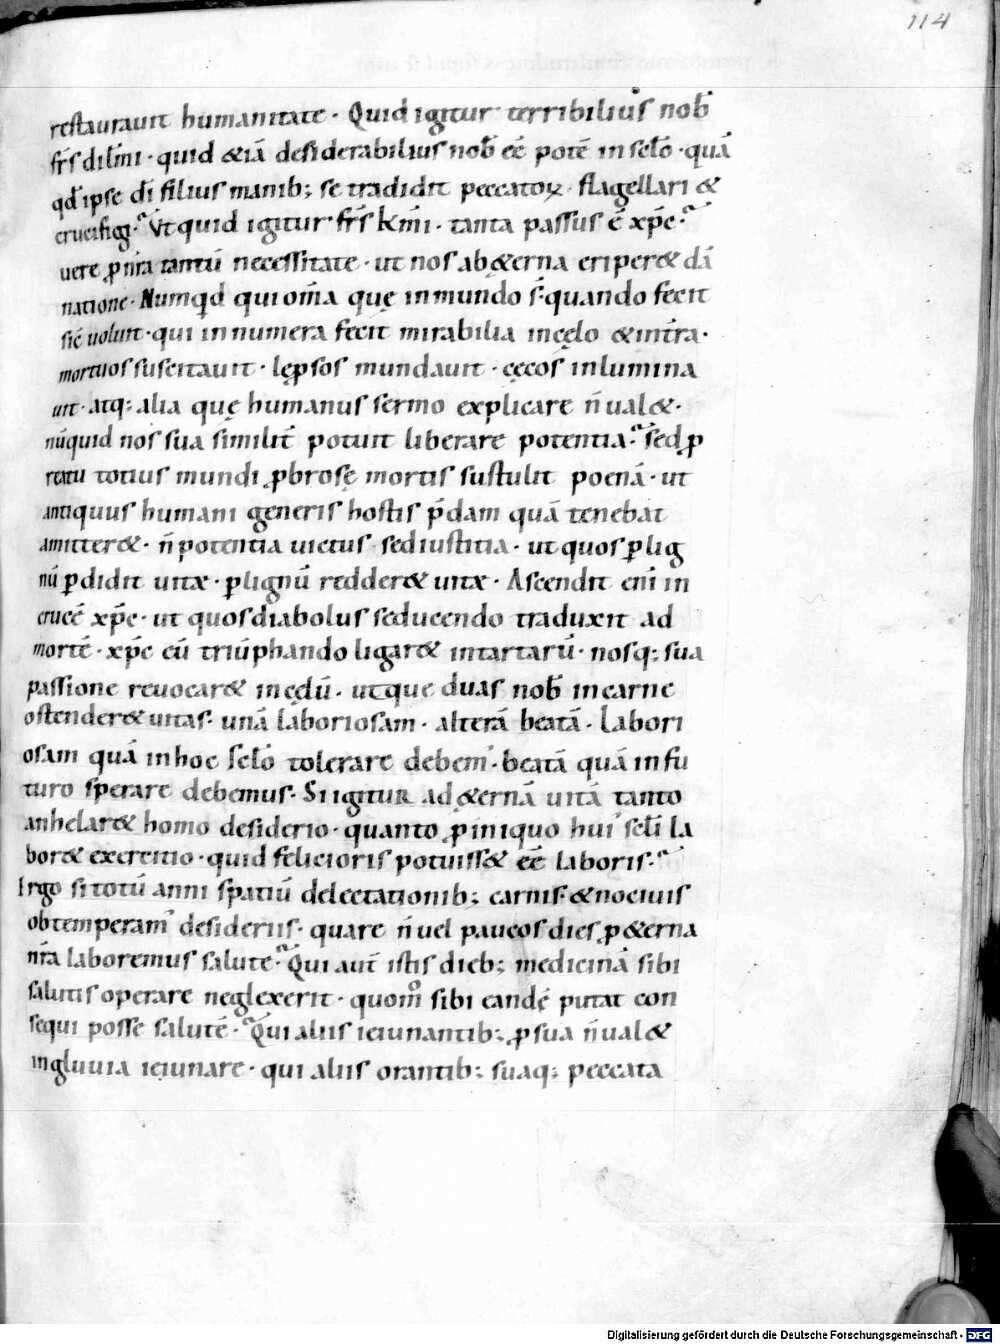 114
restaurauit humanitate · Quid igitur terribilius nob̄
frs̄ dil̄mi · quid &iā desiderabilius nob̄ eē potē in sc̄lo · quā
qd̄ ipse dī filius manib; se tradidit peccatoꝝ · flagellari &
crucifigi · Vt quid igitur frs̄ km̄i · tanta passus ē xp̄c ·
uere ꝓ nr̄a tantū necessitate · ut nos ab &erna eriper& dā
natione · Numqd qui om̄a quę in mundo s̄ · quando fecit
sic̄ uoluit · qui innumera fecit mirabilia in cęlo & in tr̄a ·
mortuos suscitauit · lęprsos mundauit · cęcos inlumina
uit · atq; alia quę humanus sermo explicare n̄ ual& ·
nūquid nos sua similit̄ potuit liberare potentia · sed ꝓ
reatu totius mundi ꝓbrosę mortis sustulit poenā · ut
antiquus humani generis hostis p̄dam quā tenebat
amitter& · n̄ potentia uictus · sed iustitia · ut quos ꝑ lig
nū ꝑdidit uitæ · ꝑ lignū redder& uitæ · Ascendit eni in
crucē xp̄c · ut quos diabolus seducendo traduxit ad
mortē · xp̄c eū triūphando ligar& in tartarū · nosq; sua
passione reuocar& in cędū · utque duas nob̄ in carne
ostender& uitas · unā laboriosam · alterā beatā · Labori
osam quā in hoc sc̄lo tolerare debem᾽ · beatā quā in fu
turo sperare debemus · Si igitur ad &ernā uitā tanto
anhelar& homo desiderio · quanto ꝓ iniquo hui᾽ sc̄li la
bor& exercitio · quid felicioris potuiss& eē laboris ·
Ergo si totū anni spatiū delectationib; carnis · & nociuis
obtemperam᾽ desideriis · quare n̄ uel paucos dies ꝓ &erna
nr̄a laboremus salute · Qui aut̄ istis dieb; medicinā sibi
salutis operare neglexerit · quom̊ sibi eandē putat con
sequi posse salutē · Qui aliis ieiunantib; ꝓ sua n̄ ual&
ingluuia ieiunare · qui aliis orantib; suaq; peccata
Digitalisierung gefördert durch die Deutsche Forschungsgemeinschaft - DFG